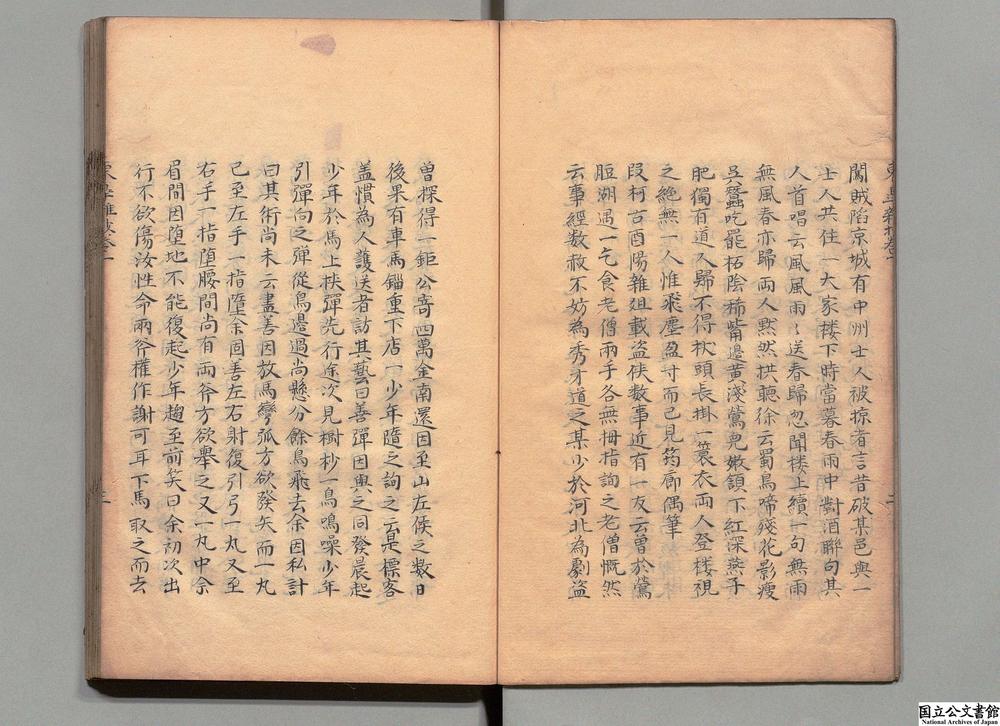 闖賊陷京城有中州士人被掠者言昔破某邑與一
士人共住一大家楼下時當暮春雨中對酒聯句其
人首唱云風風雨〻送春歸忽聞楼上續一句無雨
無風春亦歸兩人黙然拱聽徐云蜀鳥啼殘花影瘦
吳蠶吃罷柘陰稀觜邊黄淺鶯兒嫩頷下紅深燕子
肥獨有道人歸不得枕頭長掛一蓑衣両人登楼視
之絶無一人惟飛塵盈寸而已見筠廊偶筆
段柯古酉陽雜俎載盜俠数事近有一友云曽於鶯
脰湖遇一乞食老僧兩手各無拇指詢之老僧慨然
云事經数赦不妨為秀才道之某少於河北為劇盜
二
曽探得一鉅公寄四萬金南還因至山左候之数日
後果有車馬錙重下店一少年隨之詢之云是標客
盖慣為人護送者訪其藝曰善彈因與之同發晨起
少年於馬上挾彈先行途次見樹杪一鳥鳴噪少年
引彈向之彈從鳥邊過尚懸分餘鳥飛去余因私計
曰其術尚未云盡善因放馬彎弧方欲發矢而一丸
已至左手一指墮余固善左右射復引弓一丸又至
右手一指墮腰間尚有兩斧方欲舉之又一丸中余
眉間因堕地不能復起少年趨至前笑曰余初次出
行不欲傷汝性命兩斧權作謝可耳下馬取之而去
三
国立公文書館
National Archives of Japan